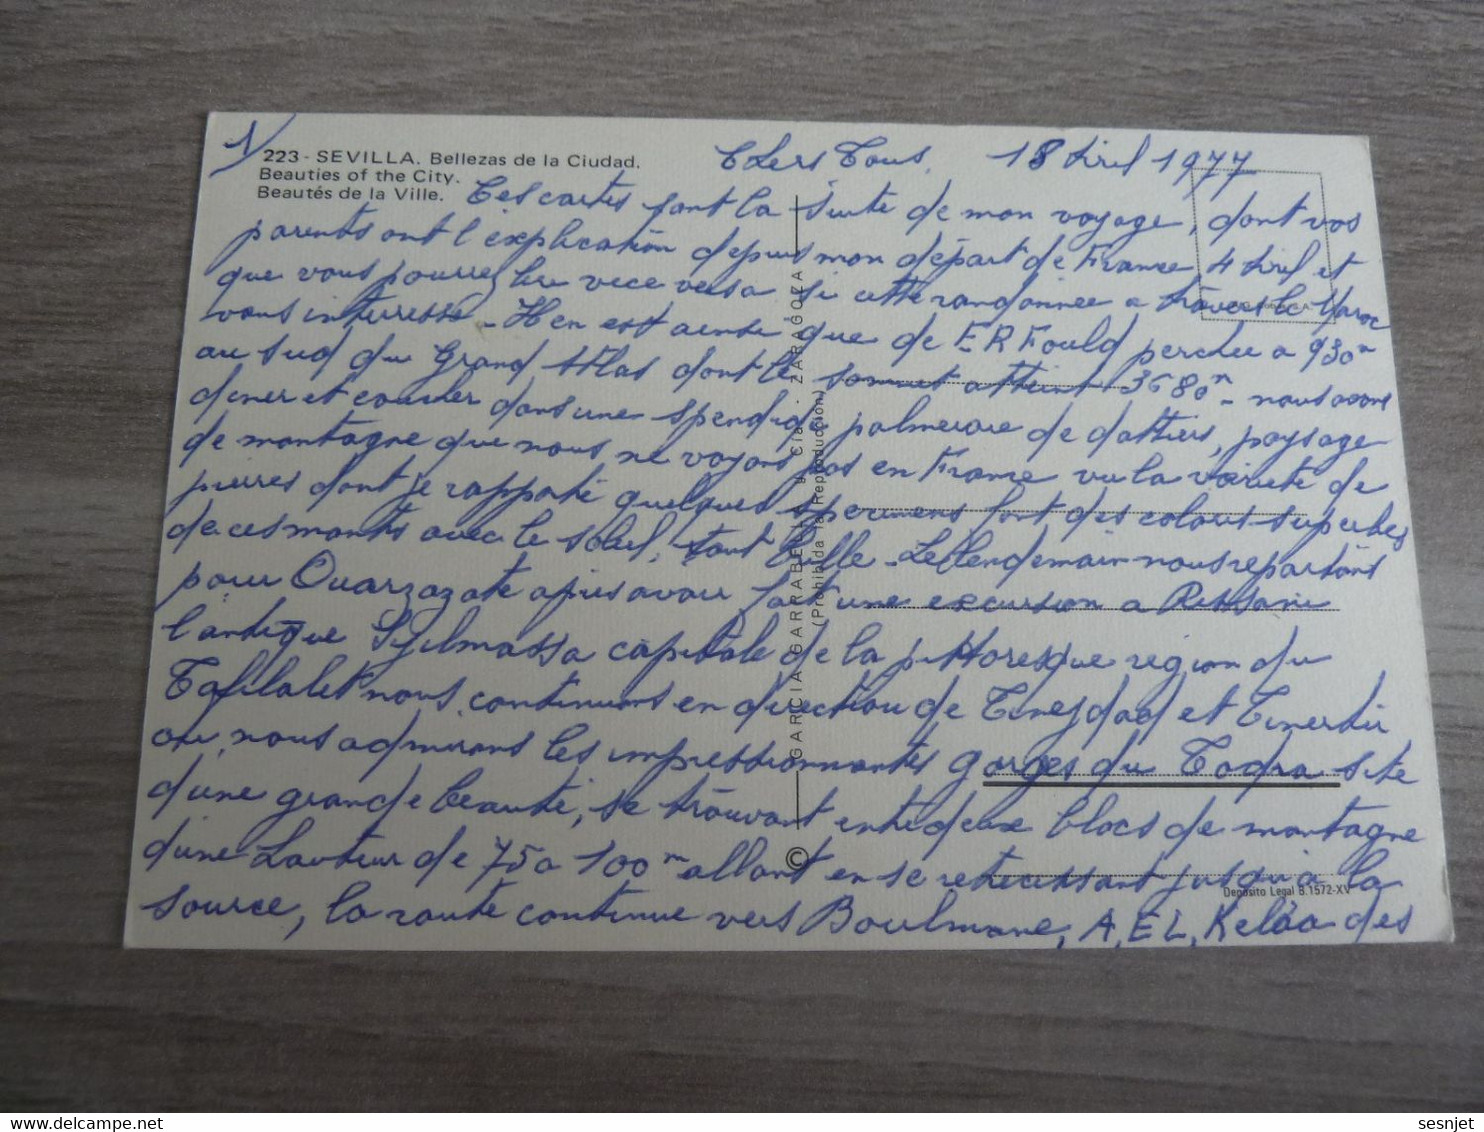 1/
223 - SEVILLA. Bellezas de la Ciudad.
Beauties of the City.
Beautés de la Ville.
Chers Tous. 18 Avril 1977
Ces cartes sont la suite de mon voyage, dont vos
parents ont l'explication depuis mon départ de France 4 Avril et
que vous pourrez lire vece versa si cette randonnée a travers le Maroc
vous interresse - H en est ainsi que de ERFould perchee a 930m
au sud du Grand Atlas dont le sommet atteint 3680m - nous avons
diner et coucher dans une spendide palmeraie de dattiers, paysage
de montagne que nous ne voyons pas en France vu la varieté de
pierres dont je rapporté quelques specimens font des coloris superbes
de ces monts avec le soleil, tout brille - Le lendemain nous repartons
pour Ouarzazate apres avoir fait une excursion a Rissani
l'antique Sijilmassa capitale de la pittoresque region du
Tafilalet nous continuons en direction de Tinejdad et Tinerhir
ou nous admirons les impressionnantes gorges du Todra site
d'une grande beauté, se trouvant entre deux blocs de montagne
d'une hauteur de 75 a 100m allant en se retrecissant jusqu'a la
source, la route continue vers Boulmane, A, EL, Kelâa des
GARCIA GARRABELLA y Cía. - ZARAGOZA
(Prohibida la Reproducción)
©
Depósito Legal B.1572-XV
sesnjet